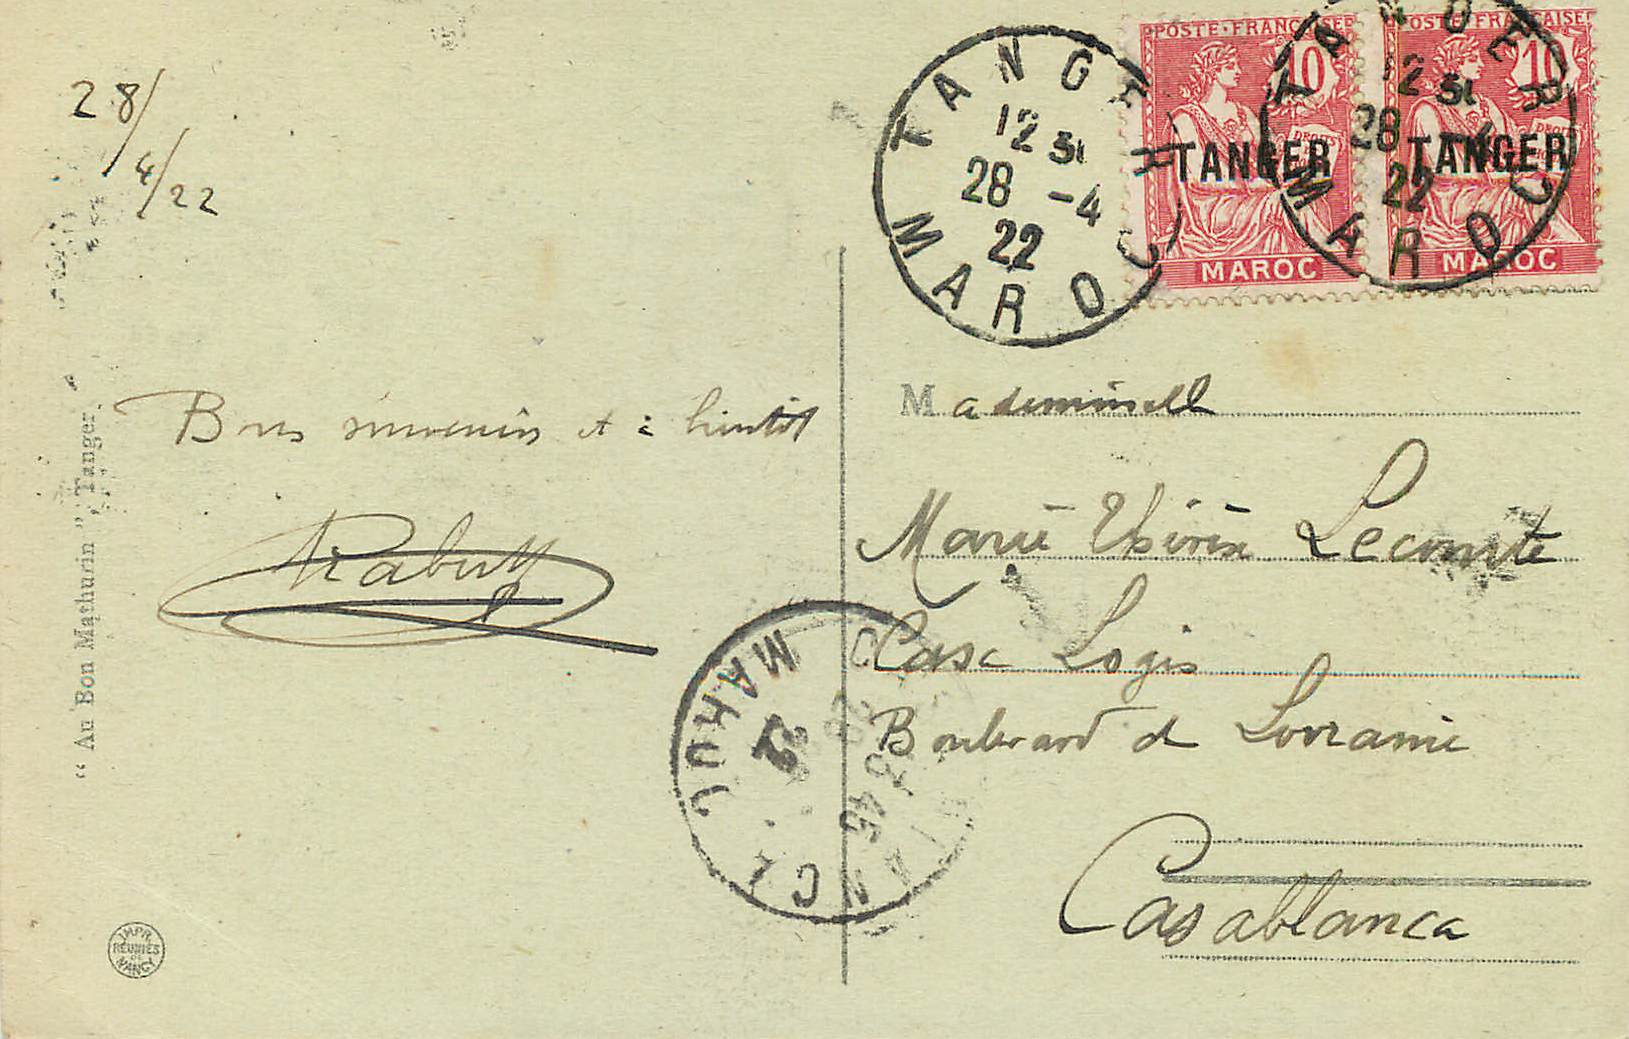 28/4/22
TANGER
12 31
28 -4
22
MAROC
POSTE FRANÇAISE
10
TANGER
MAROC
POSTE FRANÇAISE
10
TANGER
MAROC
TANGER
12 31
28 -4
22
MAROC
Bons souvenirs et à bientôt
Mademoiselle
Marie Thérèse Lecomte
Case Logis
Boulevard de Lorraine
Casablanca
" Au Bon Mathurin ", Tanger.
22
45
IMPR.
RÉUNIES
DE
NANCY